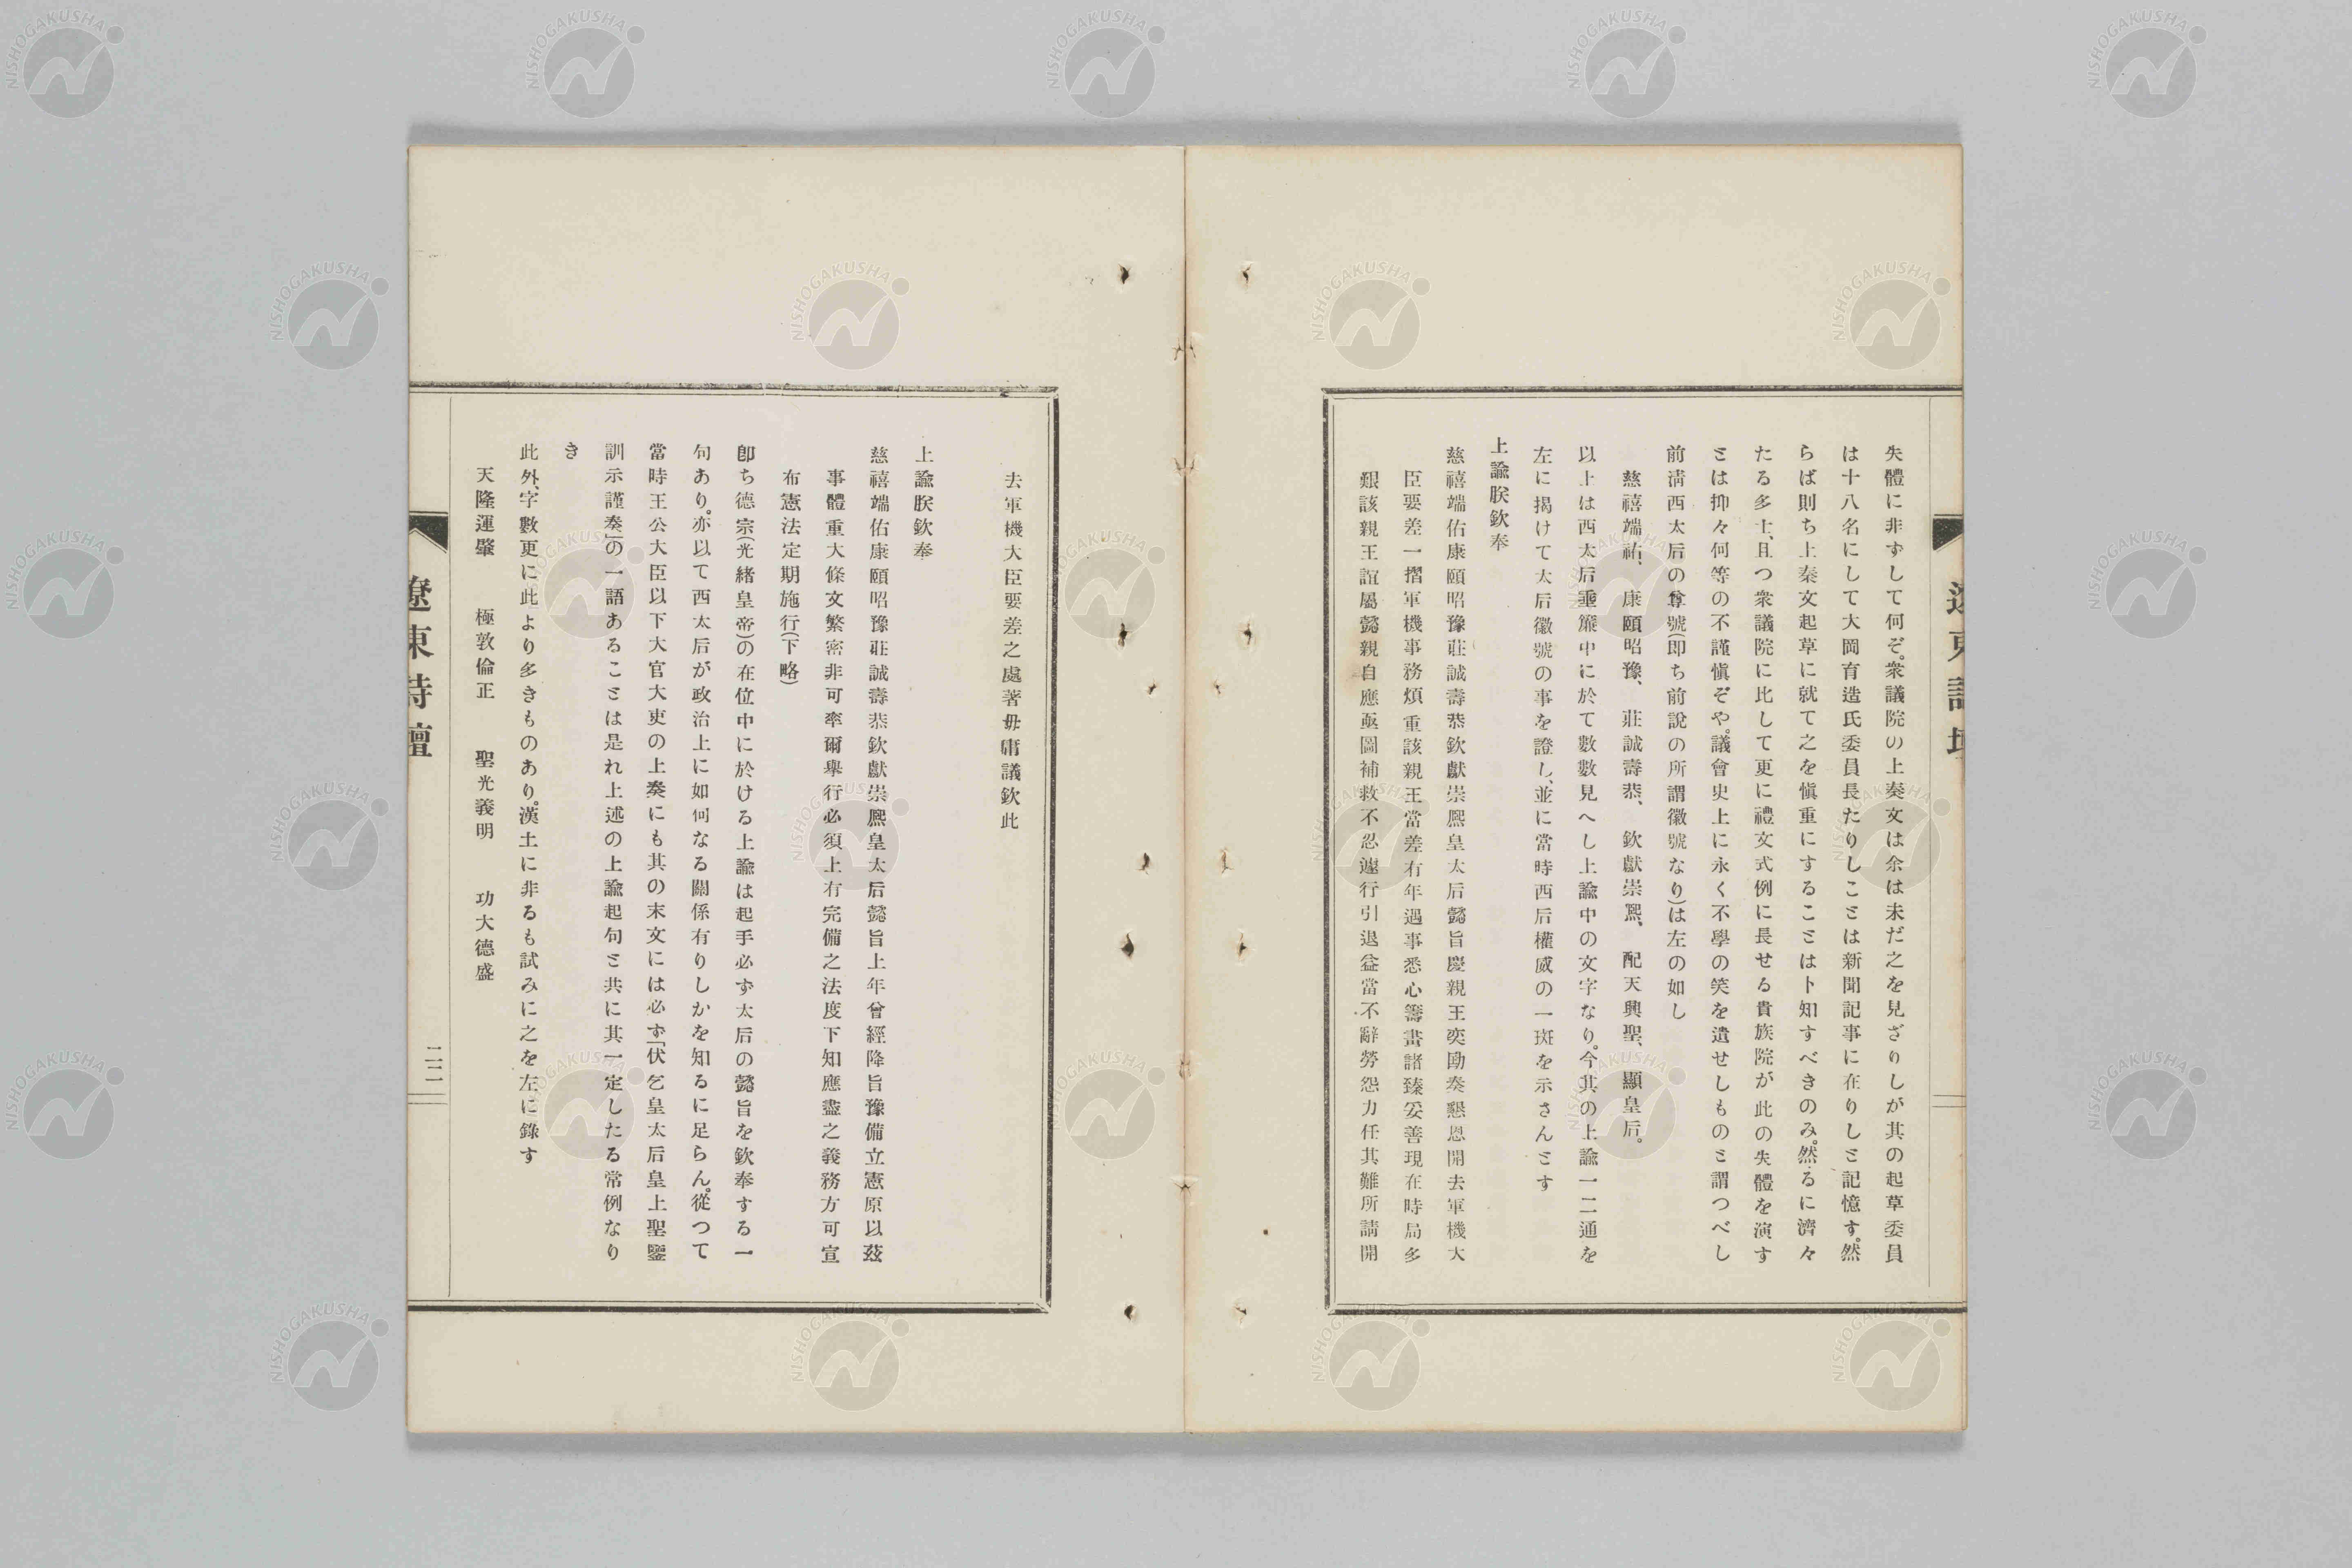 失體に非ずして何ぞ。衆議院の上奏文は余は未だ之を見ざりしが其の起草委員
は十八名にして大岡育造氏委員長たりしことは新聞記事に在りしと記憶す。然
らば則ち上奏文起草に就て之を愼重にすることは卜知すべきのみ。然るに濟々
たる多士、且つ衆議院に比して更に禮文式例に長せる貴族院が此の失體を演す
とは抑々何等の不謹愼ぞや。議會史上に永く不學の笑を遺せしものと謂つべし
前淸西太后の尊號(即ち前說の所謂徽號なり)は左の如し
慈禧端祐、康頤昭豫、莊誠壽恭、欽獻崇熙、配天興聖、顯皇后。
以上は西太后垂簾中に於て數數見へし上諭中の文字なり。今其の上諭一二通を
左に揭けて太后徽號の事を證し、並に當時西后權威の一斑を示さんとす
上諭朕欽奉
慈禧端佑康頤昭豫莊誠壽恭欽獻崇熙皇太后懿旨慶親王奕劻奏懇恩開去軍機大
臣要差一摺軍機事務煩重該親王當差有年遇事悉心籌畫諸臻妥善現在時局多
艱該親王誼屬懿親自應亟圖補救不忍遽行引退益當不辭勞怨力任其難所請開
去軍機大臣要差之處著毋庸議欽此
上諭朕欽奉
慈禧端佑康頤昭豫莊誠壽恭欽獻崇熙皇太后懿旨上年曾經降旨豫備立憲原以茲
事體重大條文繁密非可率爾舉行必須上有完備之法度下知應盡之義務方可宣
布憲法定期施行(下略)
卽ち德宗(光緒皇帝)の在位中に於ける上諭は起手必ず太后の懿旨を欽奉する一
句あり。亦以て西太后が政治上に如何なる關係有りしかを知るに足らん。從つて
當時王公大臣以下大官大吏の上奏にも其の末文には必ず「伏乞皇太后皇上聖鑒
訓示謹奏」の一語あることは是れ上述の上諭起句と共に其一定したる常例なり
き
此外、字數更に此より多きものあり。漢土に非るも試みに之を左に錄す
天隆運肇 極敦倫正 聖光義明 功大德盛
遼東詩壇
二二
NISHOGAKUSHA